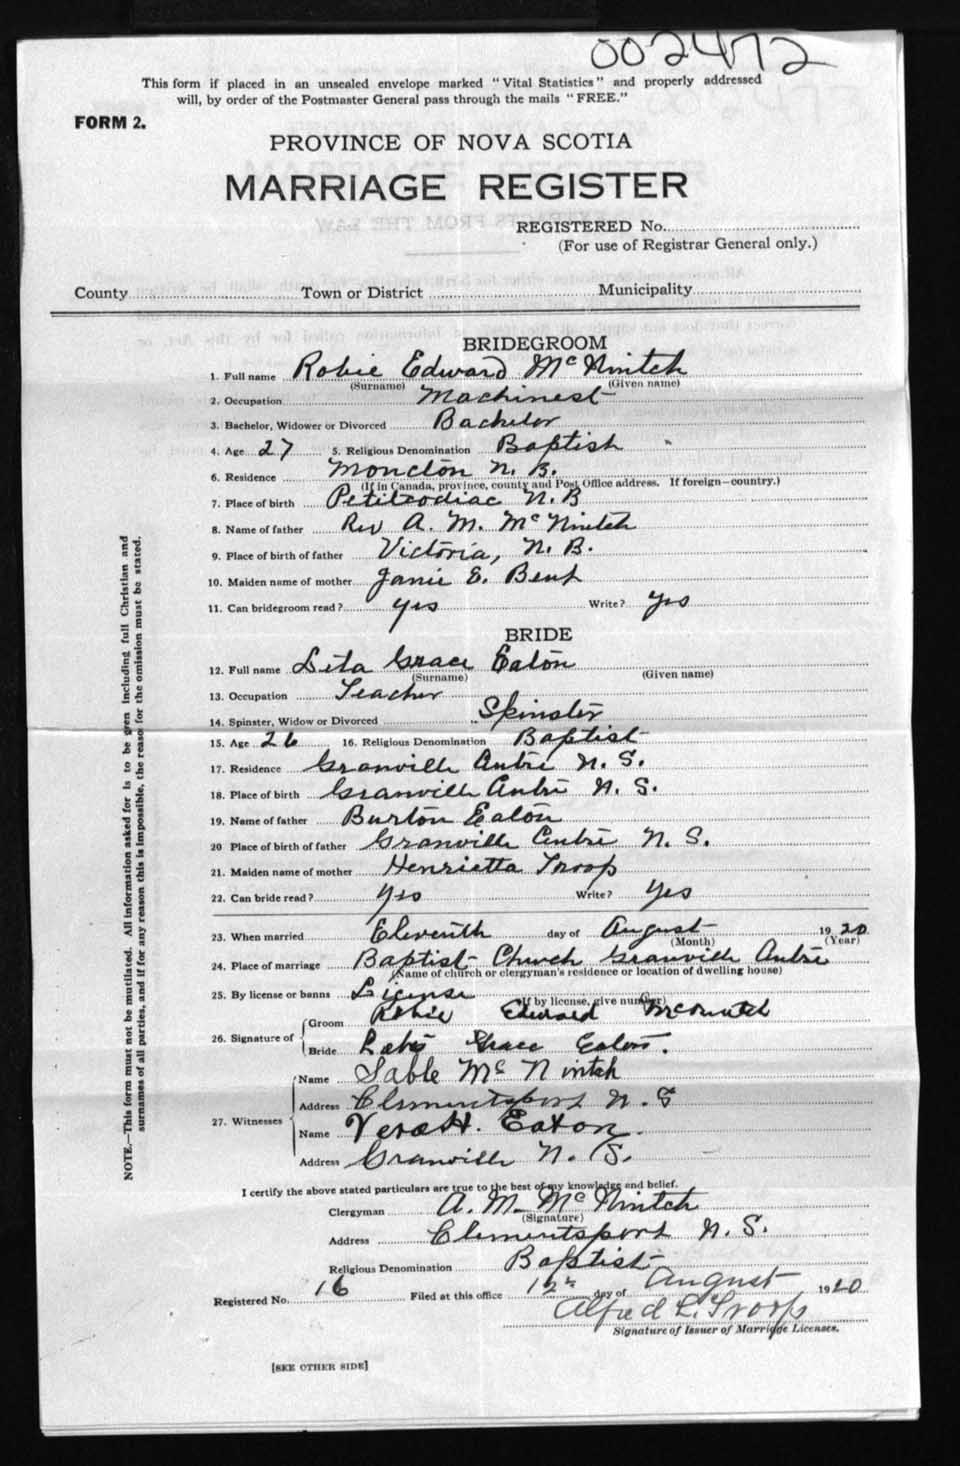 002472
This form if placed in an unsealed envelope marked "Vital Statistics" and properly addressed
will, by order of the Postmaster General pass through the mails "FREE."
FORM 2.
PROVINCE OF NOVA SCOTIA
MARRIAGE REGISTER
REGISTERED No.
(For use of Registrar General only.)
County Town or District Municipality
BRIDEGROOM
1. Full name Robie Edward McNintch
(Surname) (Given name)
2. Occupation Machinest
3. Bachelor, Widower or Divorced Bachelor
4. Age 27 5. Religious Denomination Baptish
6. Residence Moncton N. B.
(If in Canada, province, county and Post Office address. If foreign—country.)
7. Place of birth Petitcodiac N. B
8. Name of father Rev A. M. McNintch
9. Place of birth of father Victoria, N. B.
10. Maiden name of mother Janie E. Bent
11. Can bridegroom read? yes Write? yes
BRIDE
12. Full name Leta Grace Eaton
(Surname) (Given name)
13. Occupation Teacher
14. Spinster, Widow or Divorced Spinster
15. Age 26 16. Religious Denomination Baptist
17. Residence Granville Centre N. S.
18. Place of birth Granville Centre N. S.
19. Name of father Burton Eaton
20 Place of birth of father Granville Centre N. S.
21. Maiden name of mother Henrietta Troop
22. Can bride read? yes Write? yes
23. When married Eleventh day of August 1920
(Month) (Year)
24. Place of marriage Baptist Church Granville Centre
(Name of church or clergyman's residence or location of dwelling house)
25. By license or banns License
(If by license, give number)
26. Signature of Groom Robie Edward McNintch
Bride Leta Grace Eaton.
27. Witnesses Name Sable McNintch
Address Clementsport N. S
Name Vera H. Eaton.
Address Granville N. S.
I certify the above stated particulars are true to the best of my knowledge and belief.
Clergyman A. M. McNintch
(Signature)
Address Clementsport N. S.
Religious Denomination Baptist
Registered No. 16 Filed at this office 12th day of August 1920
Alfred L. Troop
Signature of Issuer of Marriage Licenses.
[SEE OTHER SIDE]
NOTE.—This form must not be mutilated. All information asked for is to be given including full Christian and
surnames of all parties, and if for any reason this is impossible, the reason for the omission must be stated.